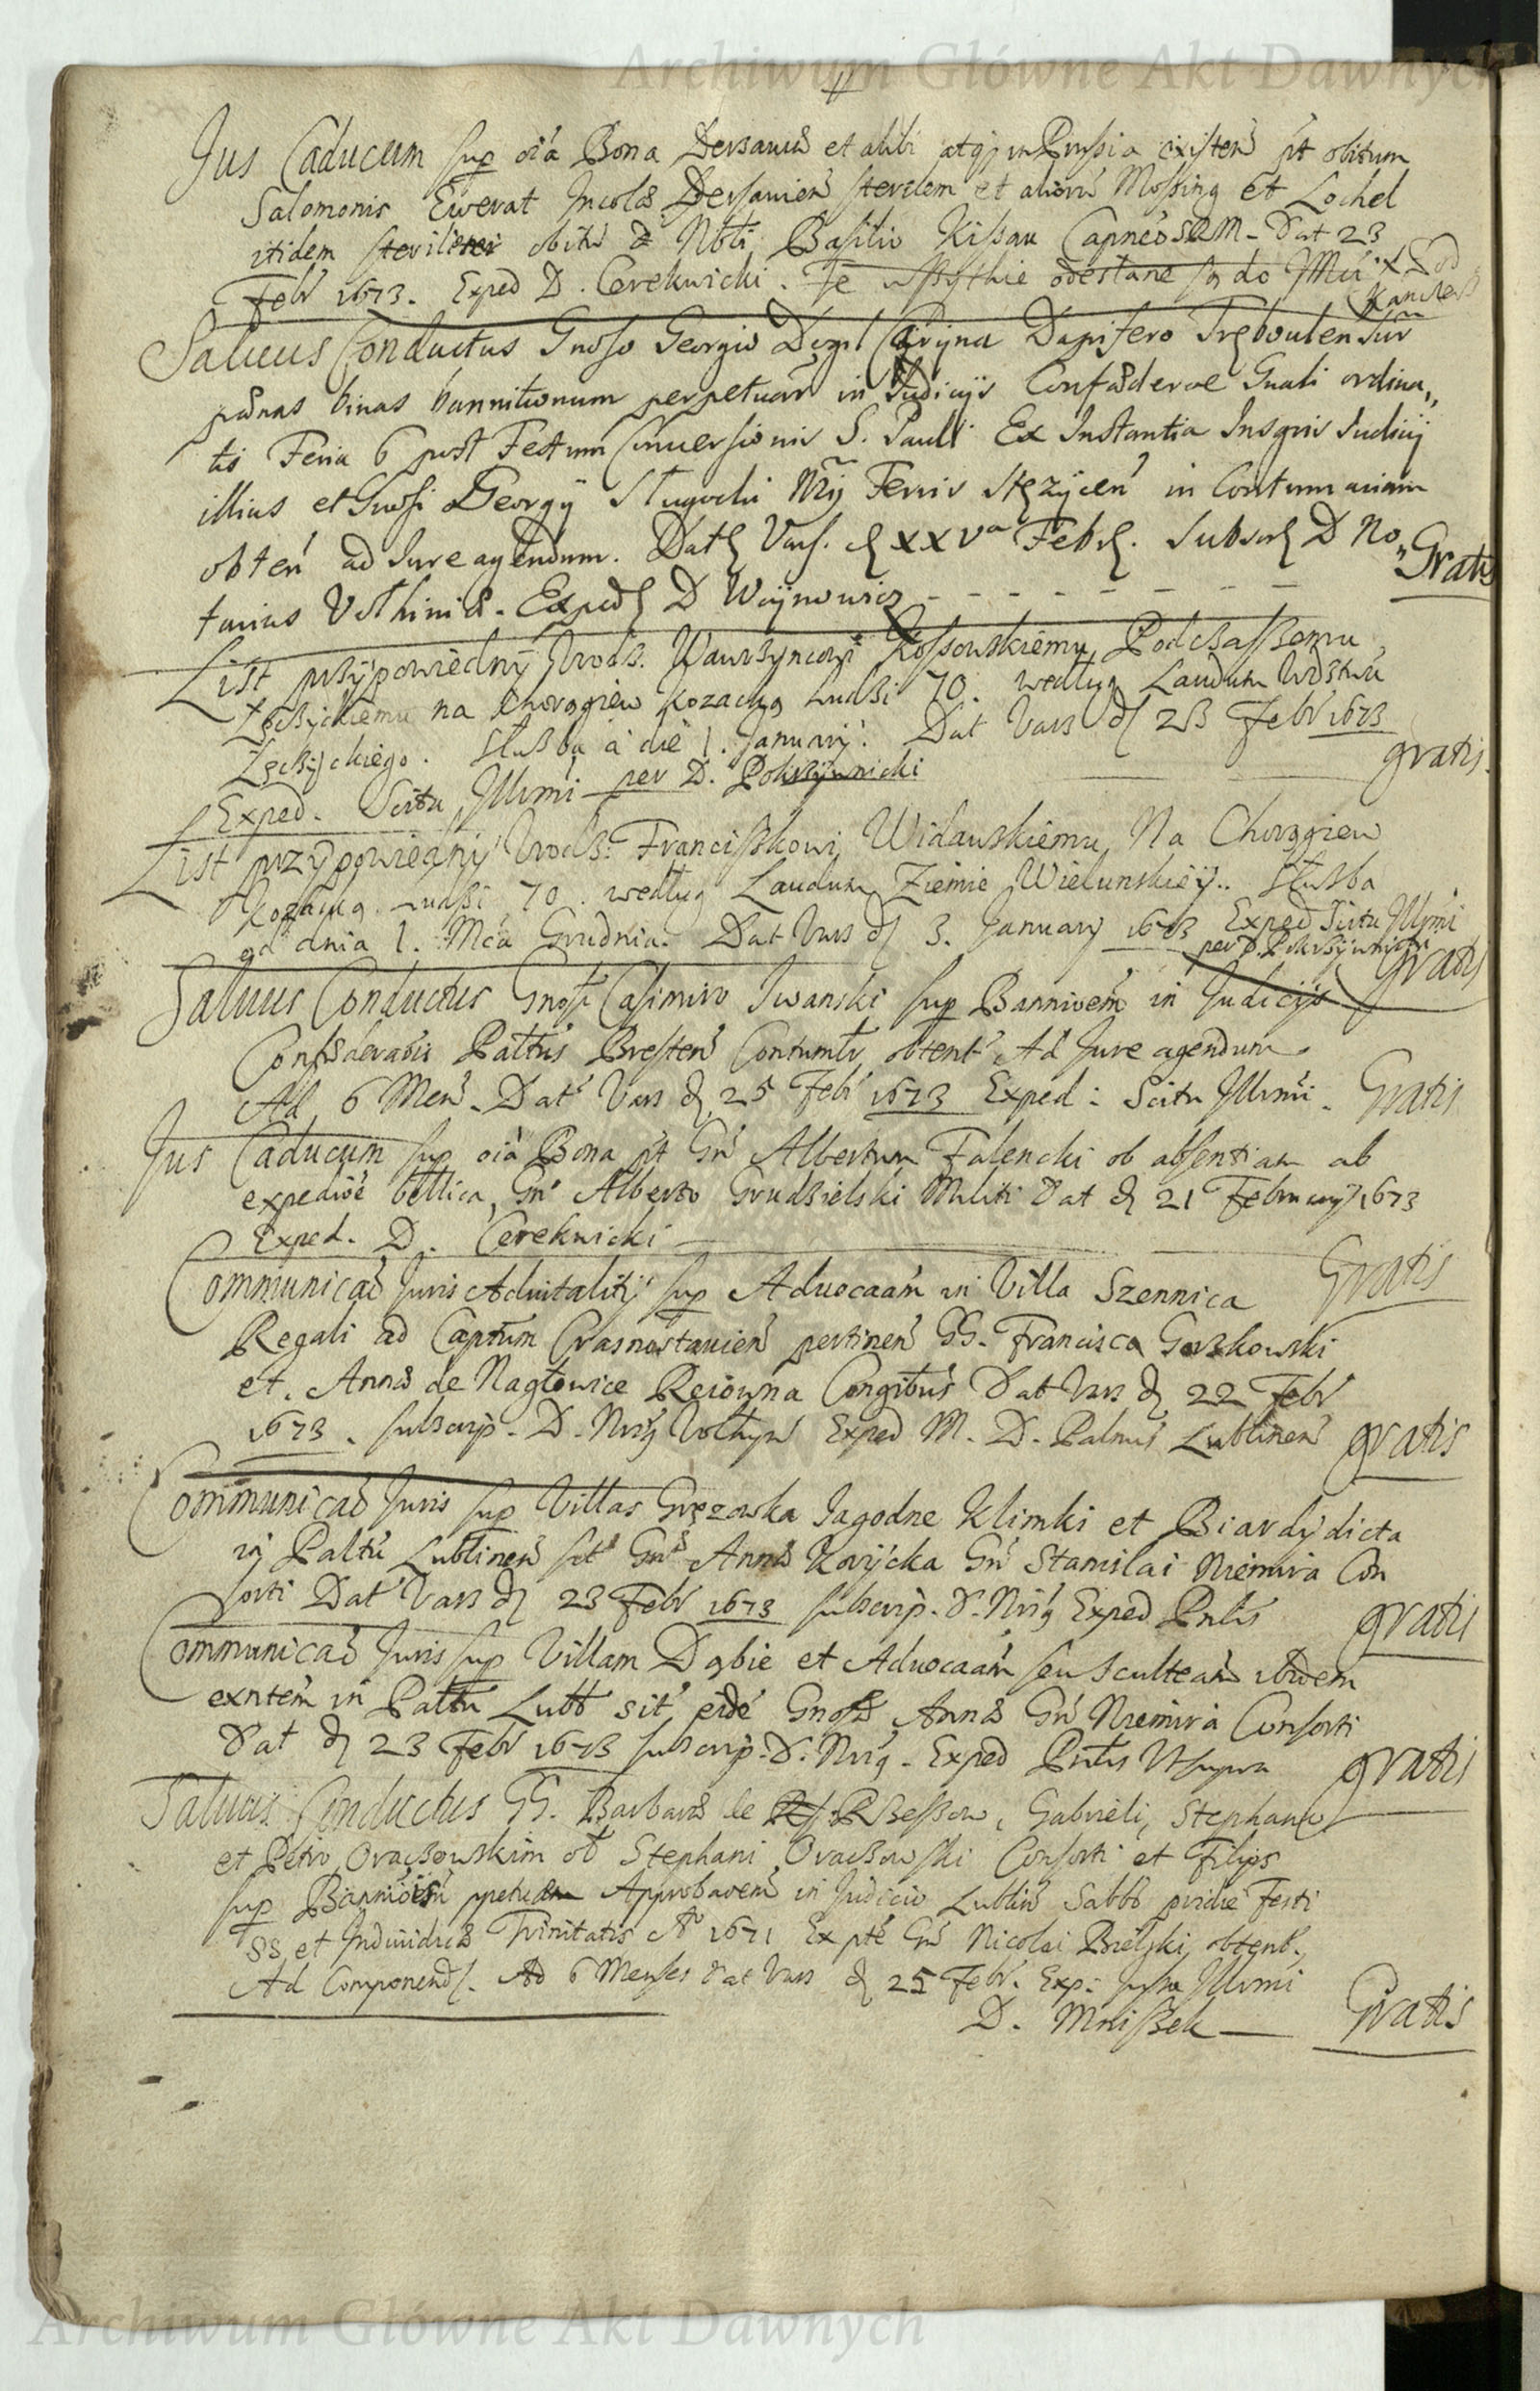 Archiwum Główne Akt Dawnych
Jus Caducum sup oĩa Bona Dersaviẽ et alibi atq̃ in Prussia existeñ p̃t obitum
Salomonis Ewerat Incolæ Derssavieñ sterilem et aliorũ Mossing et Lochel
itidem obitũ Nbli Basilio Kissau Capneo SRM. Dat 23
Febr 1673. Exped D. Cerekwicki. Te wszytkie odesłane są do JMci X Pod
Kancler
Salvus Conductus Gnoso Georgio Dapifero Tręboulen sup
pænas binas bannitionum perpetuar in Judicijs Confæderaoe Gnali ordina„
tis Feria 6 post Festum Conversionis S. Pauli Ex Instantia Insgnis Judicij
illius et Gnosi Georgij Sługocki Nrij Terris Stężyceñ in Contumaciam
obteñ ad Jure agendum. Dat Vars. d XXVa Febr. Subscr D No„ Gratis
tarius Volhiniæ. Exped D Woynowicz
List przÿpowiednÿ Urodz. Wawrzyncowi Kossowskiemu Podczaszemu
Łęczÿckiemu na Chorągiew kozacką Ludzi 70. według Laudum Wdztwa
Łęczÿckiego. Służba à die 1. Januarij. Dat Vars d 23 Febr 1673
Exped. Scitu Illrmi per D. Pokrzÿwnicki gratis.
List przÿpowiednÿ Urodz. Franciszkowi Widawskiemu Na Chorągiew
Kozacką Ludzi 70. według Laudum Ziemie Wielunskieÿ. Służba
od dnia 1. Mca Grudnia. Dat Vars d 3. January 1673 Exped Scitu Illrmi
per D. Pokrzÿwnicki Gratis
Salvus Conductus Gnoso Casimiro Iwanski sup Bannioem in Judicijs
Confæderaois Pałtus Bresteñ Contumtr obtent Ad Jure agendum
Ad 6 Meñ. Dat Vars d 25 Febr 1673 Exped: Scitu Illrmi. Gratis
Jus Caducum sup oĩa Bona p̃t Gñ Albertum Falencki ob absentiam ab
expedioe bellica, Gno Alberto Grudzielski Militi Dat d 21 February 1673
Exped. D. Cerekwicki Gratis
Communicaõ Juris Advitalitij sup Advocaam in Villa Szennica
Regali ad Captum Crasnostavieñ pertineñ GG. Francisco Gorzkowski
et Annæ de Nagłowice Reiowna Congibus Dat Vars d 22 Febr
1673. subscrip. D. Nrig Volhyn Exped M. D. Palnus Lublineñ gratis
Communicaõ Juris sup Villas Gręzowka Jagodne Klimki et Biardÿ dicta
in Paltu Lublineñ sit Gnæ Annæ Korÿcka Gñ Stanislai Niemira Con
sorti Dat Vars d 23 Febr 1673 subscrip. D. Nrig Exped Pntis gratis
Communicaõ Juris sup Villam Dąbie et Advocaam seu Scultetiam ibidem
exntem in Paltu Lubl sit eidẽ Gnosæ Annæ Gñ Niemira Consorti
Dat d 23 Febr 1673 subscrip. D. Nrig. Exped Pntis Ut supra gratis
Salvus Conductus GG. Barbaræ de Rzeszow, Gabrieli, Stephano
et Petro Oraczowskim olt Stephani Oraczowski Consorti et Filijs
sup Bannioem ppetuam Approbaoem in Judicio Lubliñ Sabbo pridie Festi
SS et Individuæ Trinitatis Ao 1671 Ex pte Gñ Nicolai Bielski, obtent.
Ad Componend. Ad 6 Menses Dat Vars d 25 Febr. Exp: Jussu Illrmi
D. Mniszek Gratis
Archiwum Główne Akt Dawnych